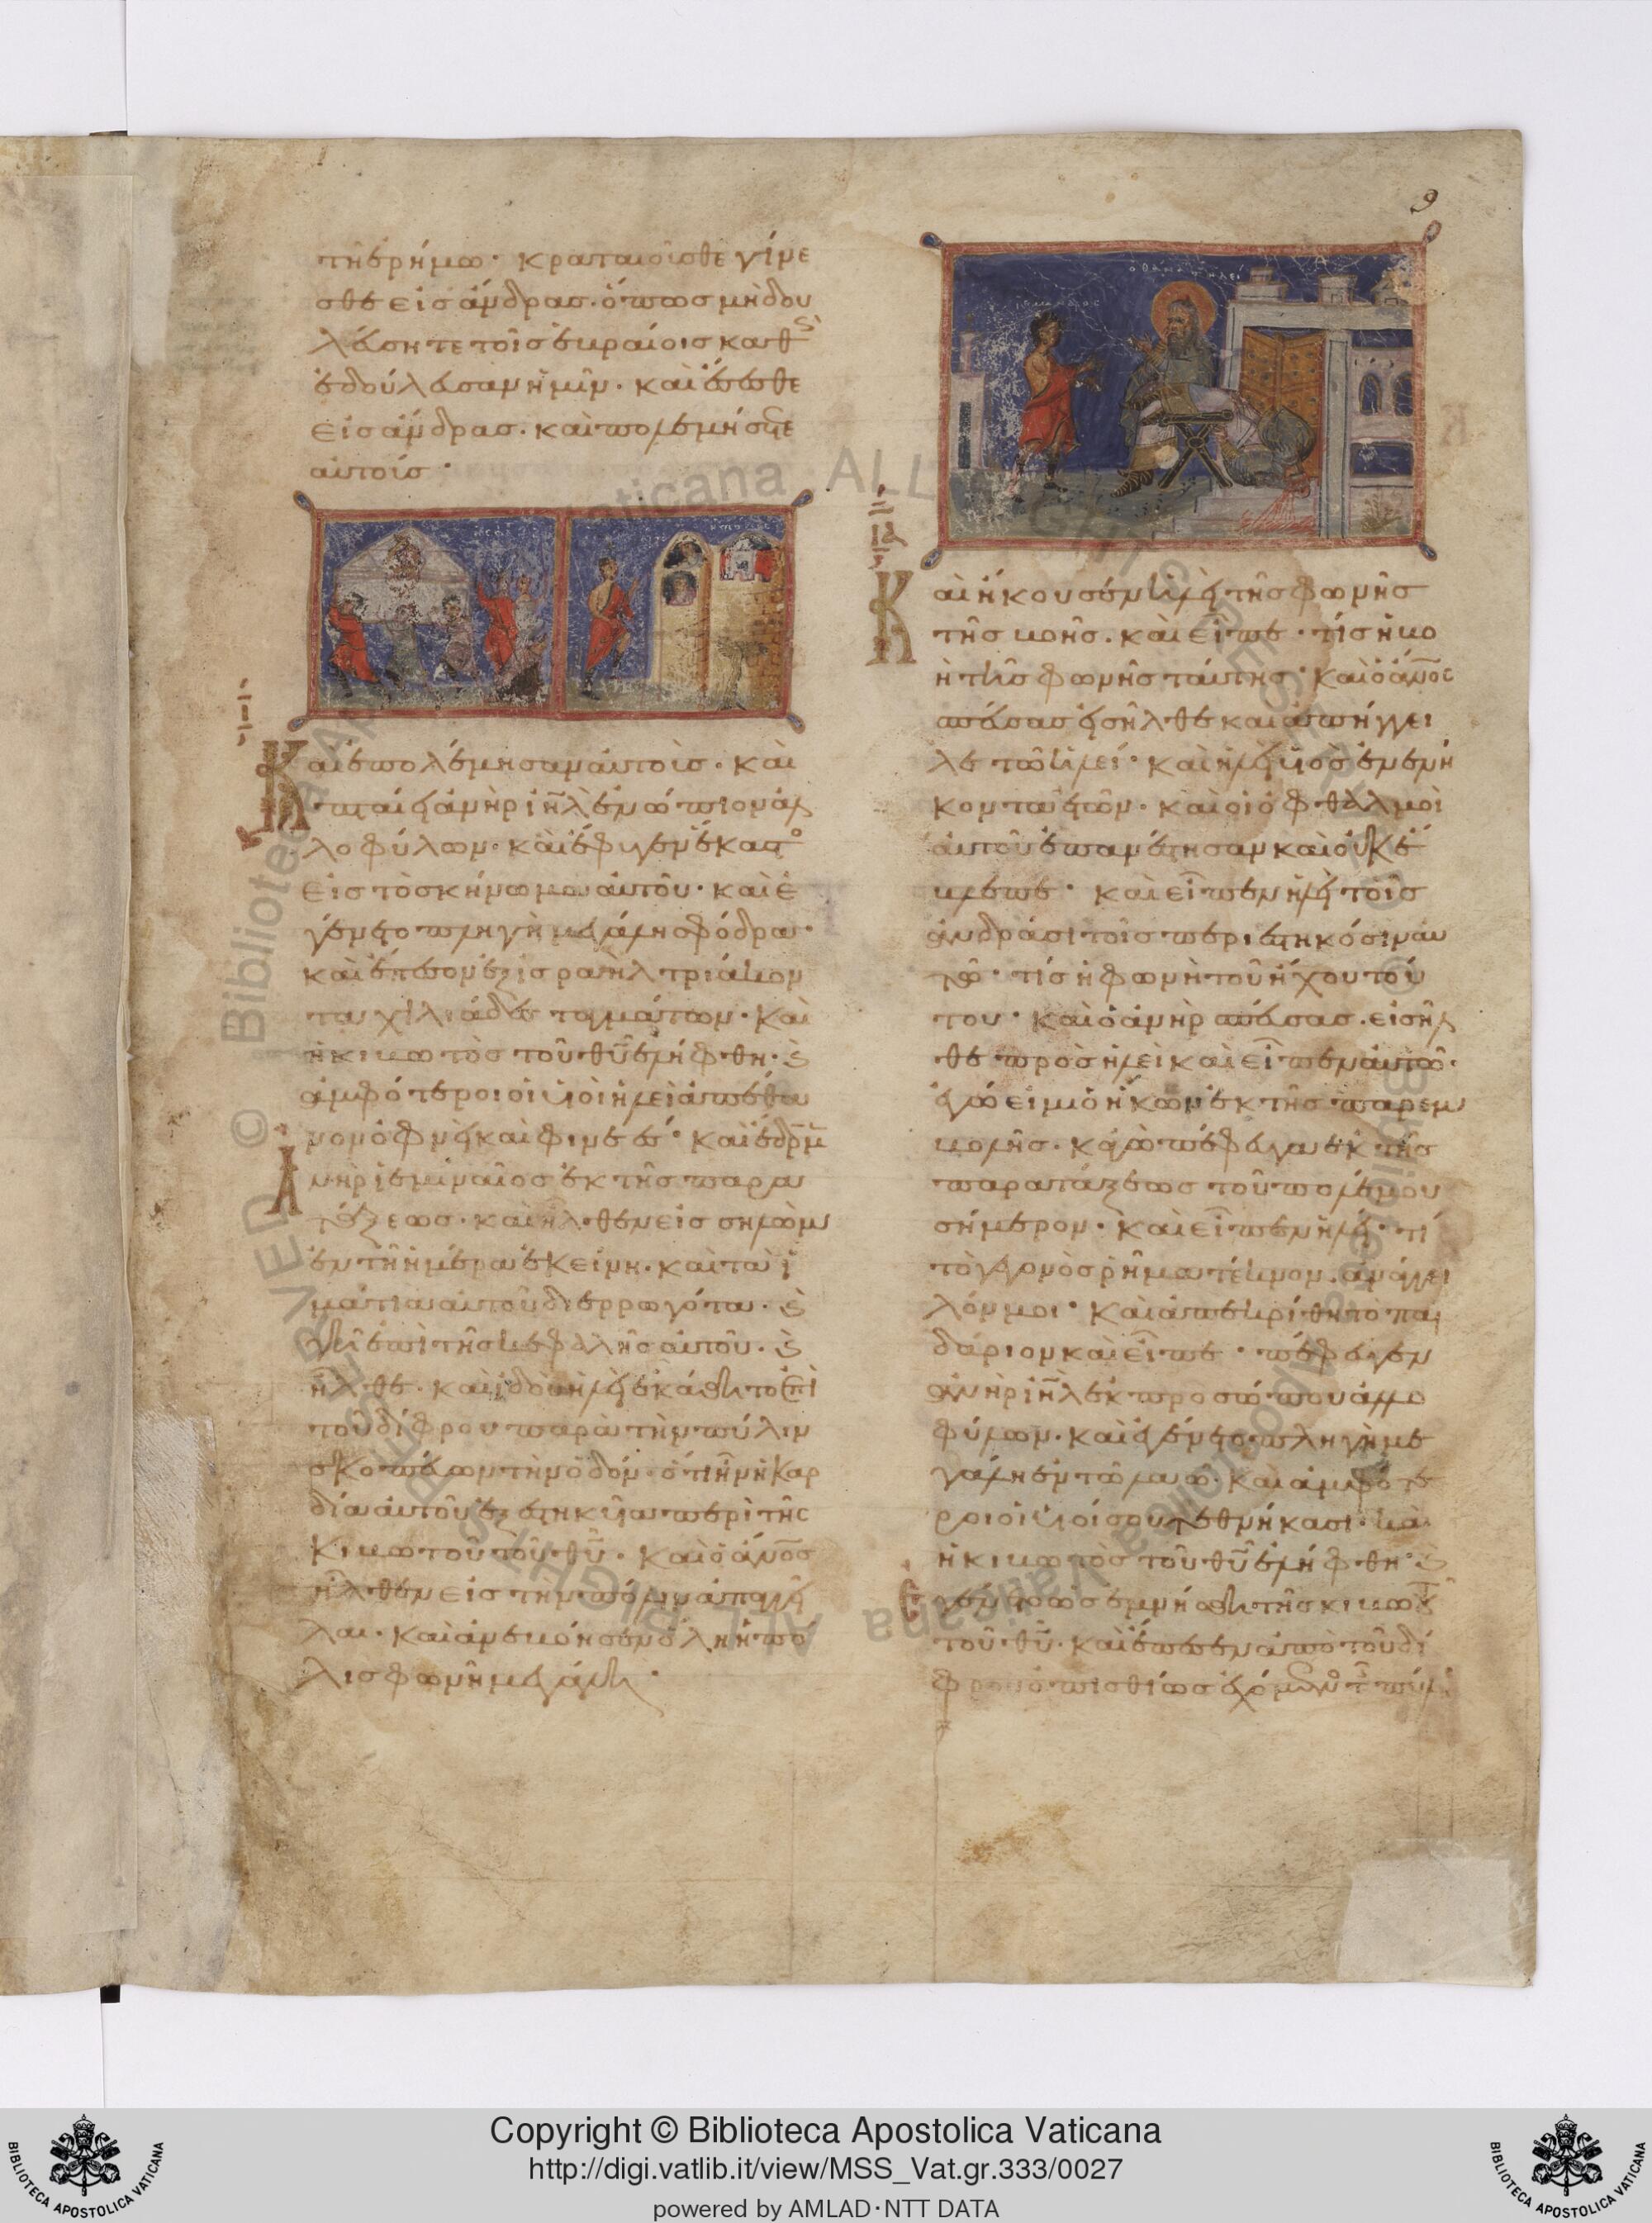 9
τῆ ἐρήμω· κραταιοῦσθε γίνε
σθε εἰς ἄνδρας· ὅπως μὴ δου
λεύσητε τοῖς ἑβραίοις καθὼς
ἐδούλευσαν ἡμῖν· καὶ ἔσεσθε
εἰς ἄνδρας· καὶ πολεμήσατε
αὐτοῖς·
Καὶ ἐπολέμησαν αὐτοῖς· καὶ
πταίει ἀνὴρ ιῆλ ἐνώπιον ἀλ
λοφύλων· καὶ ἔφυγεν ἕκαστος
εἰς τὸ σκήνωμα αὐτοῦ· καὶ ἐ
γένετο πληγὴ μεγάλη σφόδρα·
καὶ ἔπεσον ἐξ ισραὴλ τριάκον
τα χιλιάδες ταγμάτων· Καὶ
ἡ κιβωτὸς τοῦ θῦ ἐλήφθη· καὶ
ἀμφότεροι οἱ υἱοὶ ἡλεὶ ἀπέθα
νον ὀφνεὶ καὶ φινεές· καὶ ἔδραμεν
Ἀνὴρ ἰεμιναῖος ἐκ τῆς παρα
τάξεως· καὶ ἦλθεν εἰς σηλὼμ
ἐν τῆ ἡμέρα ἐκείνη· καὶ τὰ ἱ
μάτια αὐτοῦ διερρωγότα· καὶ
γῆ ἐπὶ τῆς κεφαλῆς αὐτοῦ· καὶ
ἦλθε· καὶ ἰδοὺ ἡλεὶ ἐκάθητο ἐπὶ
τοῦ δίφρου παρὰ τὴν πύλην
σκοπεύων τὴν ὁδόν· ὅτι ἦν ἡ καρ
δία αὐτοῦ ἐξεστηκυῖα περὶ τῆς
κιβωτοῦ τοῦ θῦ· Καὶ ὁ ἄνος
ἦλθεν εἰς τὴν πόλιν ἀπαγγεῖ
λαι· καὶ ἀνεβόησεν ὅλη ἡ πό
λις φωνῆ μεγάλη·
Καὶ ἤκουσεν ἡλεὶ τῆς φωνῆς
τῆς βοῆς· καὶ εἶπε· τίς ἡ βο
ὴ τῆς φωνῆς ταύτης· Καὶ ὁ ἄνος
σπεύσας εἰσῆλθε καὶ ἀπήγγει
λε τῶ ἡλεί· καὶ ἡλεὶ υἱὸς ἐνενή
κοντα ἐτῶν· καὶ οἱ ὀφθαλμοὶ
αὐτοῦ ἐπανέστησαν καὶ οὐκ ἔ
βλεπε· καὶ εἶπεν ἡλεὶ τοῖς
ἀνδράσι τοῖς περιεστηκόσιν αὐ
τῶ· τίς ἡ φωνὴ τοῦ ἤχου τού
του· καὶ ὁ ἀνὴρ σπεύσας· εἰσῆλ
θε πρὸς ἡλεὶ καὶ εἶπεν αὐτῶ·
ἐγώ εἰμι ὁ ἥκων ἐκ τῆς παρεμ
βολῆς· κἀγὼ πέφευγα ἐκ τῆς
παρατάξεως τοῦ πολέμου
σήμερον· καὶ εἶπεν ἡλεί· τί
τὸ γεγονὸς ῥῆμα τέκνον· ἀνάγγει
λόν μοι· Καὶ ἀπεκρίθη τὸ παι
δάριον καὶ εἶπε· πέφευγεν
ἀνὴρ ιῆλ ἐκ προσώπου ἀλλο
φύλων· καὶ ἐγένετο πληγὴ με
γάλη ἐν τῶ λαῶ· καὶ ἀμφότε
ροι οἱ υἱοί σου τεθνήκασι· καὶ
ἡ κιβωτὸς τοῦ θῦ ἐλήφθη· καὶ
ἐγένετο ὡς ἐμνήσθη τῆς κιβωτοῦ
τοῦ θῦ· καὶ ἔπεσεν ἀπὸ τοῦ δί
φρου ὀπισθίως ἐχόμενος τῆς πύλης
Copyright © Biblioteca Apostolica Vaticana
http://digi.vatlib.it/view/MSS_Vat.gr.333/0027
powered by AMLAD·NTT DATA
BIBLIOTECA APOSTOLICA VATICANA
BIBLIOTECA APOSTOLICA VATICANA